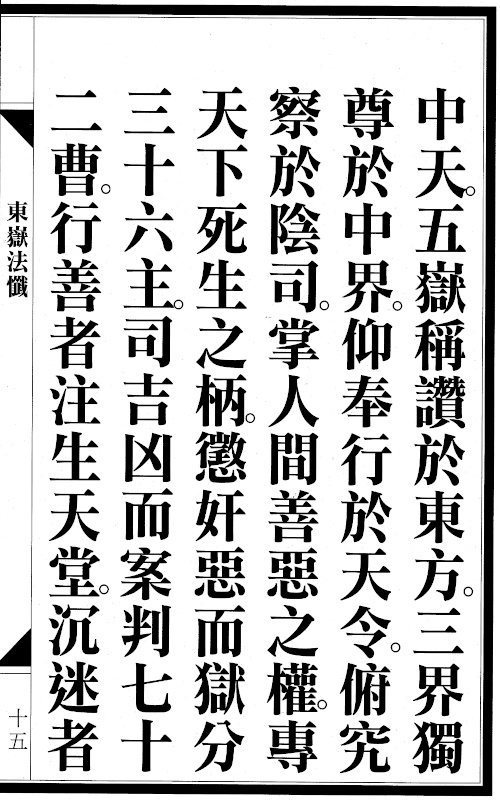 中天。五嶽稱讚於東方。三界獨
尊於中界。仰奉行於天令。俯究
察於陰司。掌人間善惡之權。專
天下死生之柄。懲奸惡而獄分
三十六主。司吉凶而案判七十
二曹。行善者注生天堂。沉迷者
東嶽法懺
十五